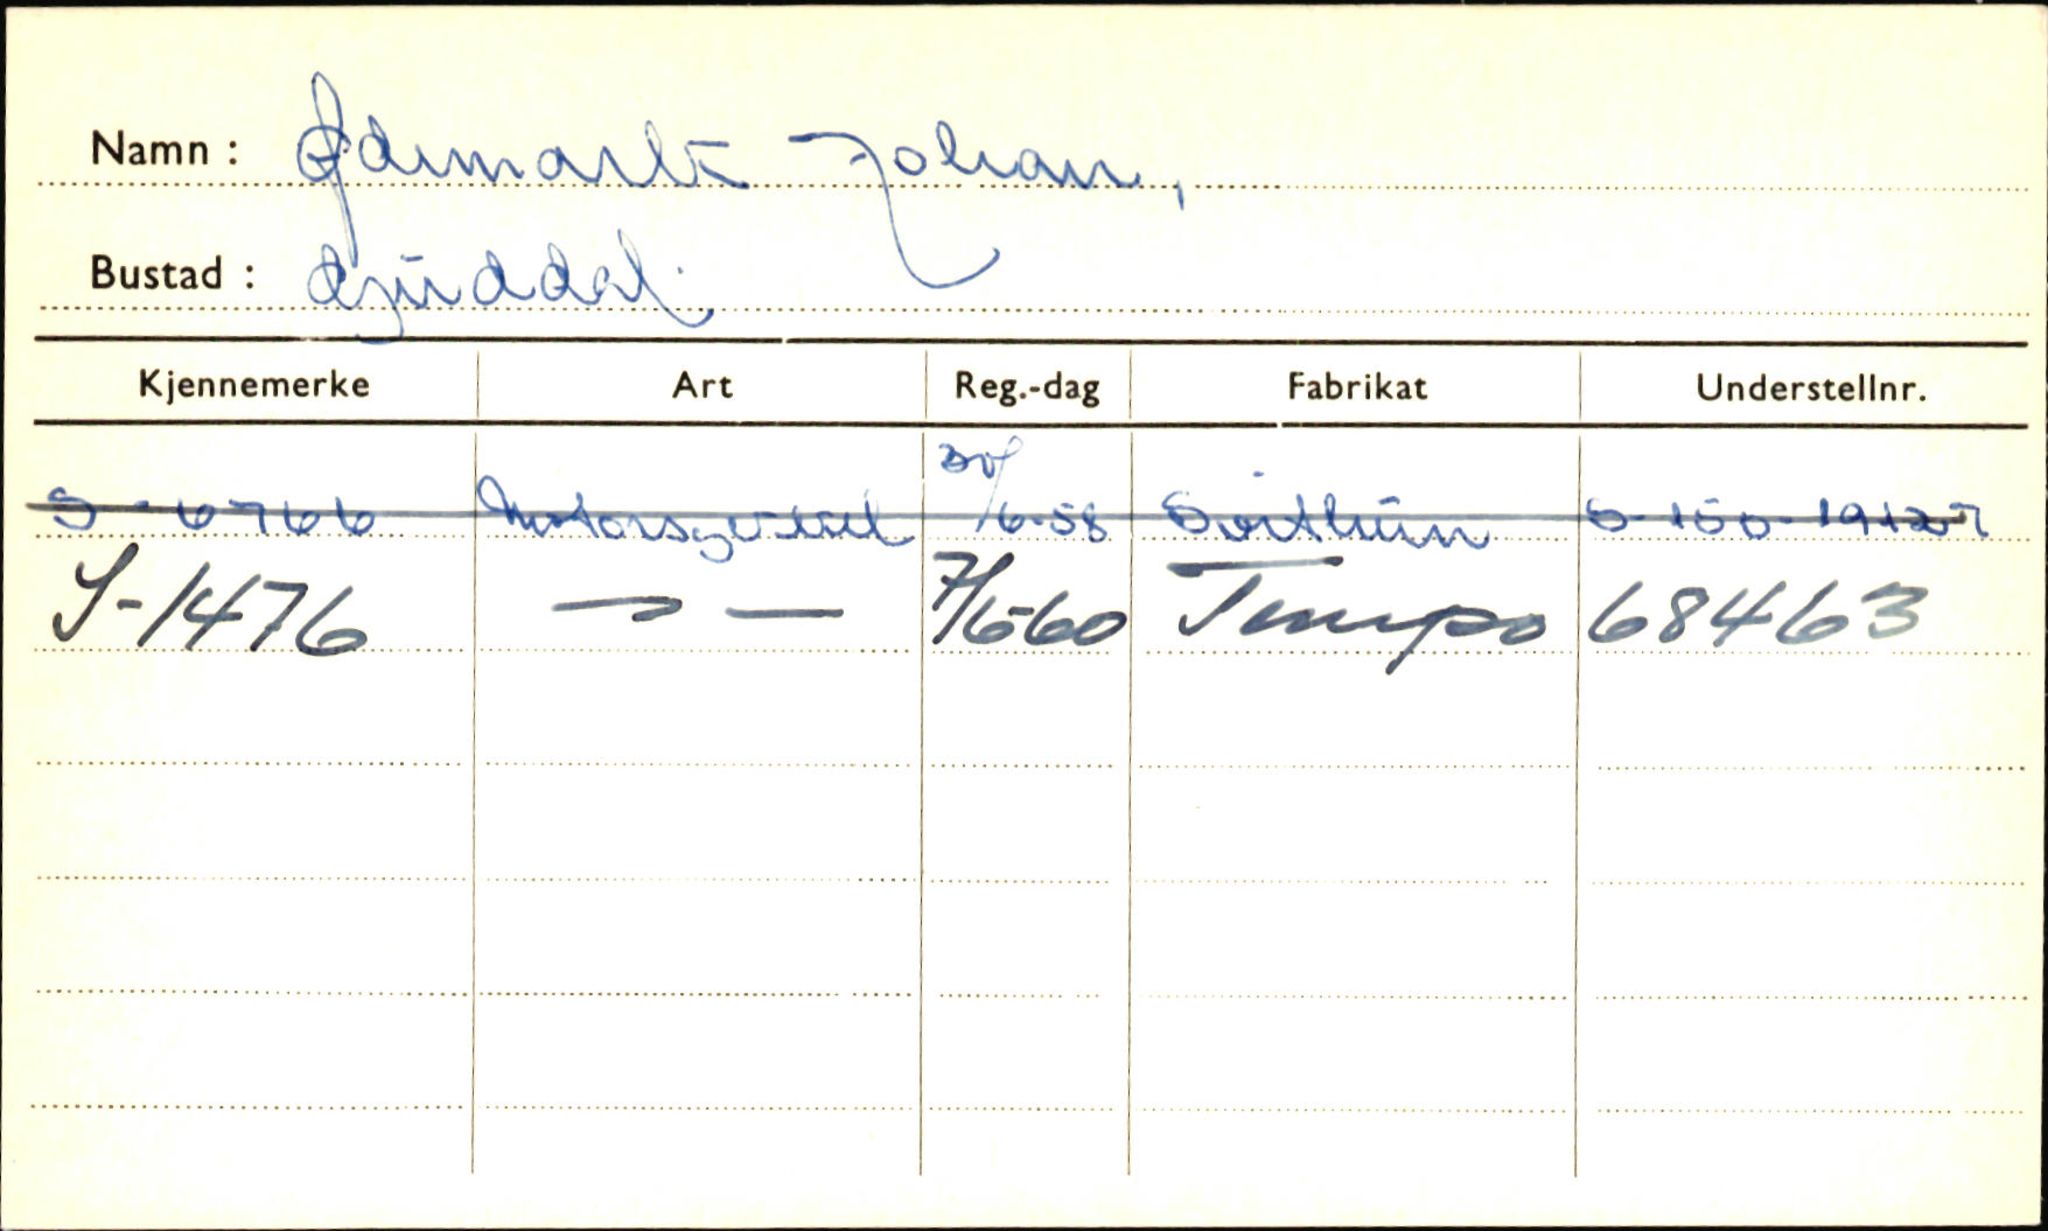 Namn : Ødemark Johan,
Bustad :
Kjennemerke Art Reg.-dag Fabrikat Understellnr.
S-6766 Motorsykkel 30/6-58 S-150-19127
S-1476 —〃— 7/6-60 Tempo 68463